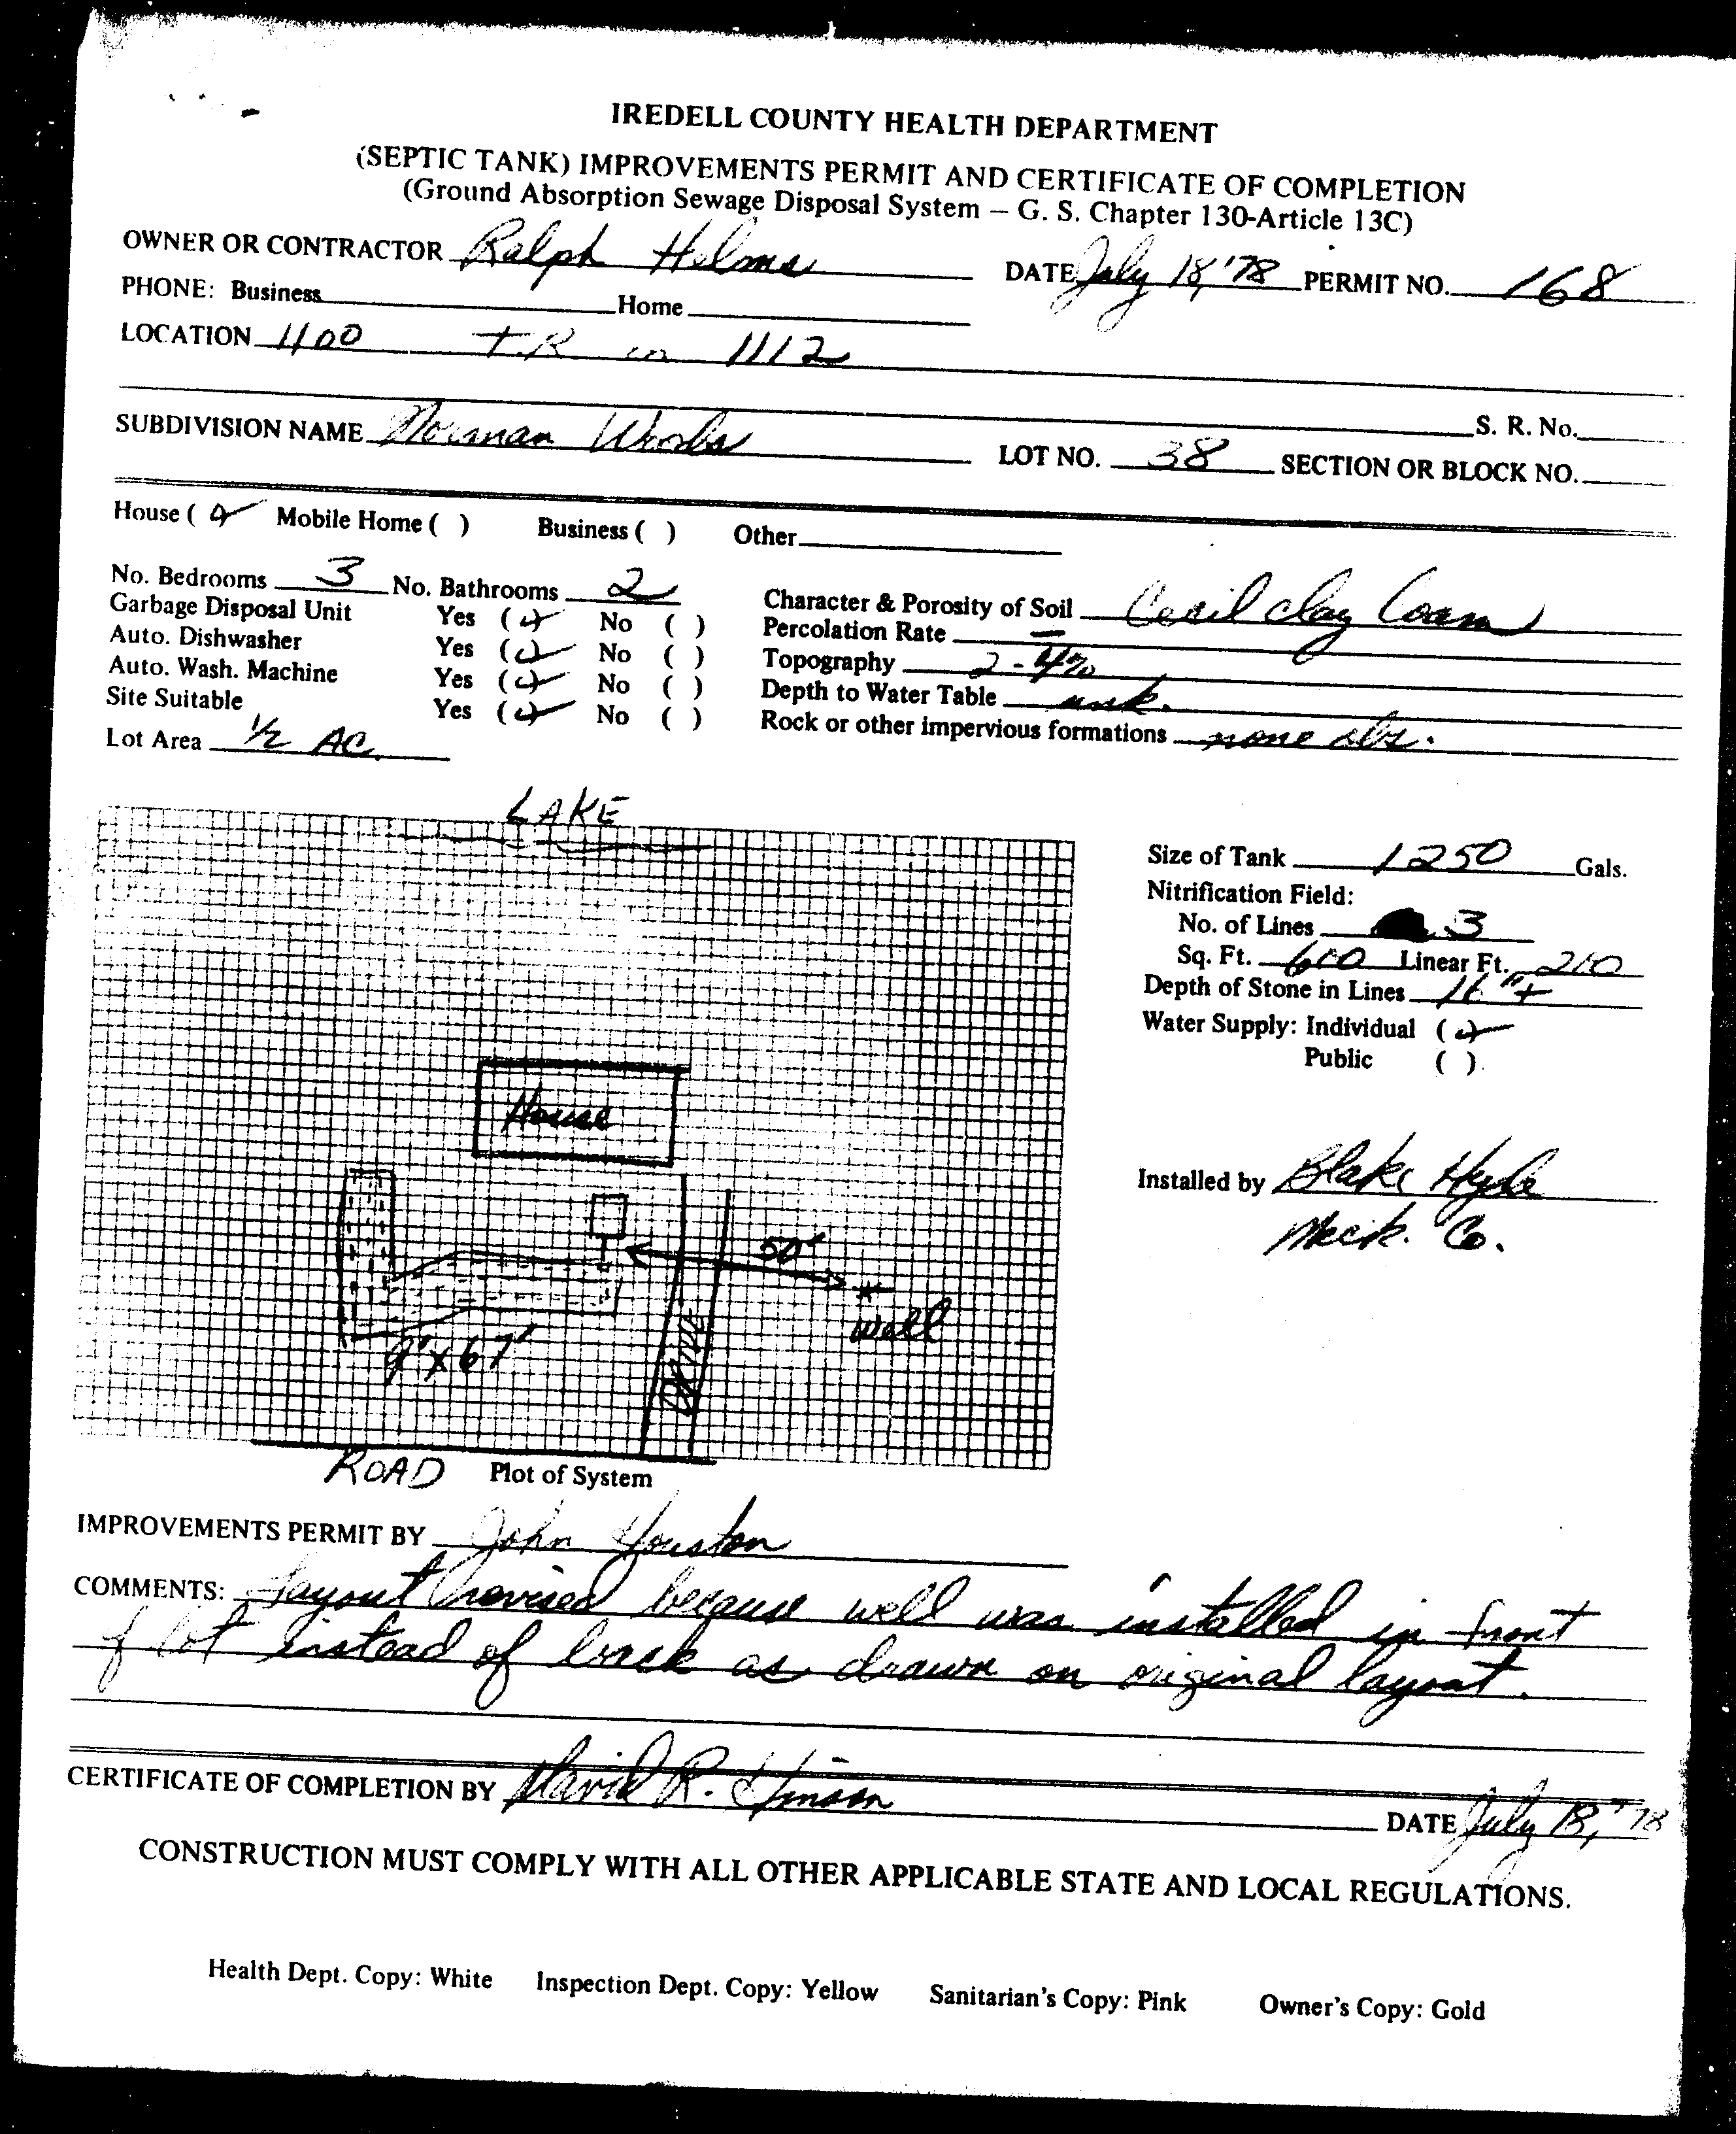 IREDELL COUNTY HEALTH DEPARTMENT
(SEPTIC TANK) IMPROVEMENTS PERMIT AND CERTIFICATE OF COMPLETION
(Ground Absorption Sewage Disposal System – G. S. Chapter 130-Article 13C)
OWNER OR CONTRACTOR Ralph Helms DATE July 18, '78 PERMIT NO. 168
PHONE: Business Home
LOCATION 1100 T.R on 1112
S. R. No.
SUBDIVISION NAME Norman Woods LOT NO. 38 SECTION OR BLOCK NO.
House ( ✓ Mobile Home ( ) Business ( ) Other
No. Bedrooms 3 No. Bathrooms 2 Character & Porosity of Soil Cecil clay Loam
Garbage Disposal Unit Yes (✓) No ( ) Percolation Rate —
Auto. Dishwasher Yes (✓) No ( ) Topography 2 - 4%
Auto. Wash. Machine Yes (✓) No ( ) Depth to Water Table unk.
Site Suitable Yes (✓) No ( ) Rock or other impervious formations none obs.
Lot Area 1/2 AC.
LAKE
Size of Tank 1250 Gals.
Nitrification Field:
No. of Lines 3
Sq. Ft. Linear Ft.
Depth of Stone in Lines
Water Supply: Individual (✓)
Public ( )
House
Installed by Blake Hyde
Meck. Co.
50'
Well
9' x 67'
Drive
ROAD Plot of System
IMPROVEMENTS PERMIT BY John Houston
COMMENTS: Layout revised because well was installed in front
of lot instead of back as drawn on original layout.
CERTIFICATE OF COMPLETION BY David R. DATE July 18, '78
CONSTRUCTION MUST COMPLY WITH ALL OTHER APPLICABLE STATE AND LOCAL REGULATIONS.
Health Dept. Copy: White Inspection Dept. Copy: Yellow Sanitarian's Copy: Pink Owner's Copy: Gold